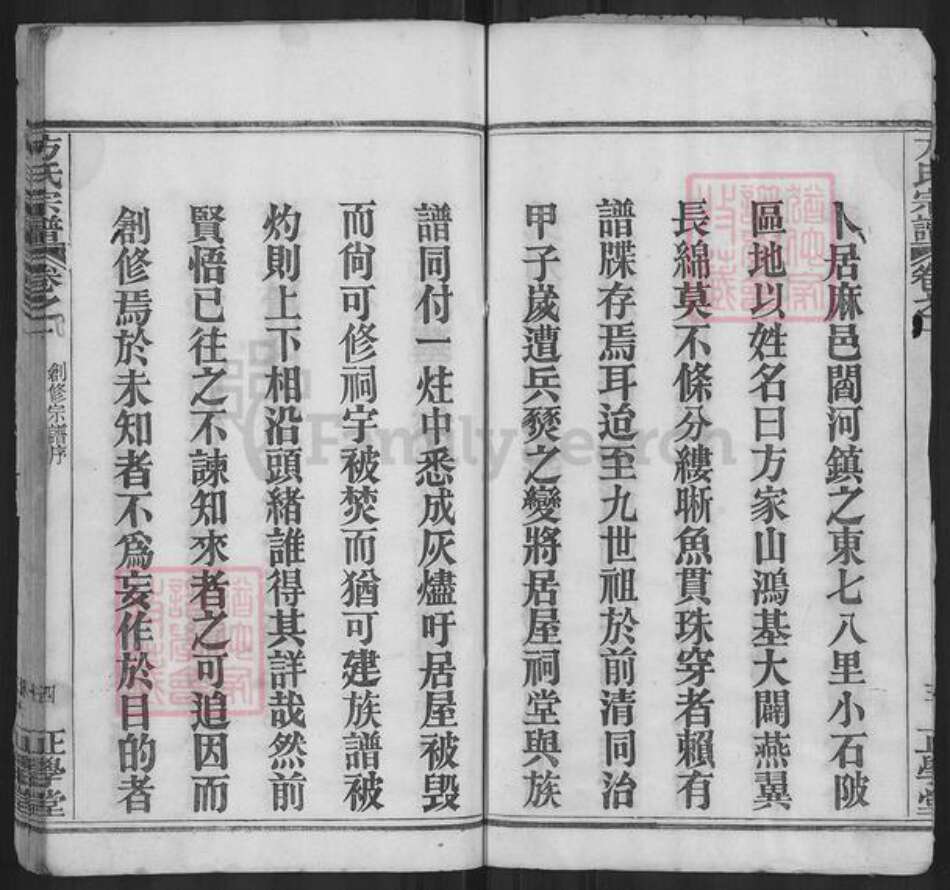 卜居麻邑閻河鎮之東七八里小石陂
區地以姓名曰方家山鴻基大闢燕翼
長綿莫不條分縷晰魚貫珠穿者賴有
譜牒存焉耳迨至九世祖於前清同治
甲子歲遭兵燹之變將居屋祠堂與族
譜同付一炷中悉成灰燼吁居屋被毀
而尙可修祠宇被焚而猶可建族譜被
灼則上下相沿頭緒誰得其詳哉然前
賢悟已往之不諫知來者之可追因而
創修焉於未知者不爲妄作於目的者
方氏宗譜
卷之
創修宗譜序
四
正學堂
方氏宗譜
卷之
正學堂
FamilySearch